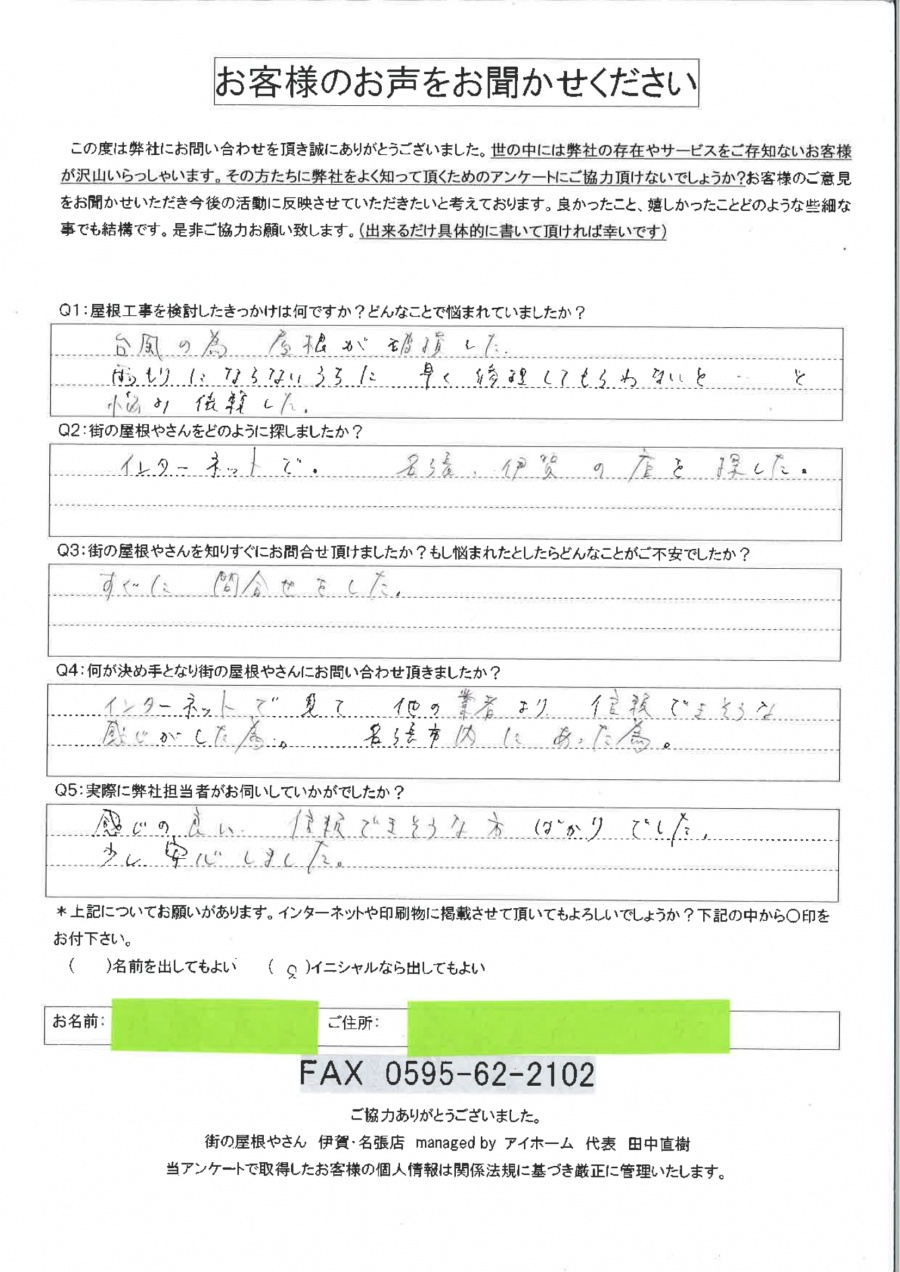 お客様のお声をお聞かせください
この度は弊社にお問い合わせを頂き誠にありがとうございました。世の中には弊社の存在やサービスをご存知ないお客様
が沢山いらっしゃいます。その方たちに弊社をよく知って頂くためのアンケートにご協力頂けないでしょうか?お客様のご意見
をお聞かせいただき今後の活動に反映させていただきたいと考えております。良かったこと、嬉しかったことどのような些細な
事でも結構です。是非ご協力お願い致します。(出来るだけ具体的に書いて頂ければ幸いです)
Q1:屋根工事を検討したきっかけは何ですか?どんなことで悩まれていましたか?
台風の為 屋根が破損した。
雨もりにならないうちに 早く修理してもらわないと … と
悩み 依頼した。
Q2:街の屋根やさんをどのように探しましたか?
インターネットで。 名張、伊賀の店を探した。
Q3:街の屋根やさんを知りすぐにお問合せ頂けましたか?もし悩まれたとしたらどんなことがご不安でしたか?
すぐに 問合せをした。
Q4:何が決め手となり街の屋根やさんにお問い合わせ頂きましたか?
インターネットで見て 他の業者より 信頼できそうな
感じがした為。 名張市内にあった為。
Q5:実際に弊社担当者がお伺いしていかがでしたか?
感じの良い 信頼できそうな方ばかりでした。
少し安心しました。
*上記についてお願いがあります。インターネットや印刷物に掲載させて頂いてもよろしいでしょうか?下記の中から○印を
お付下さい。
( )名前を出してもよい (○)イニシャルなら出してもよい
お名前: ご住所:
FAX 0595-62-2102
ご協力ありがとうございました。
街の屋根やさん 伊賀・名張店 managed by アイホーム 代表 田中直樹
当アンケートで取得したお客様の個人情報は関係法規に基づき厳正に管理いたします。